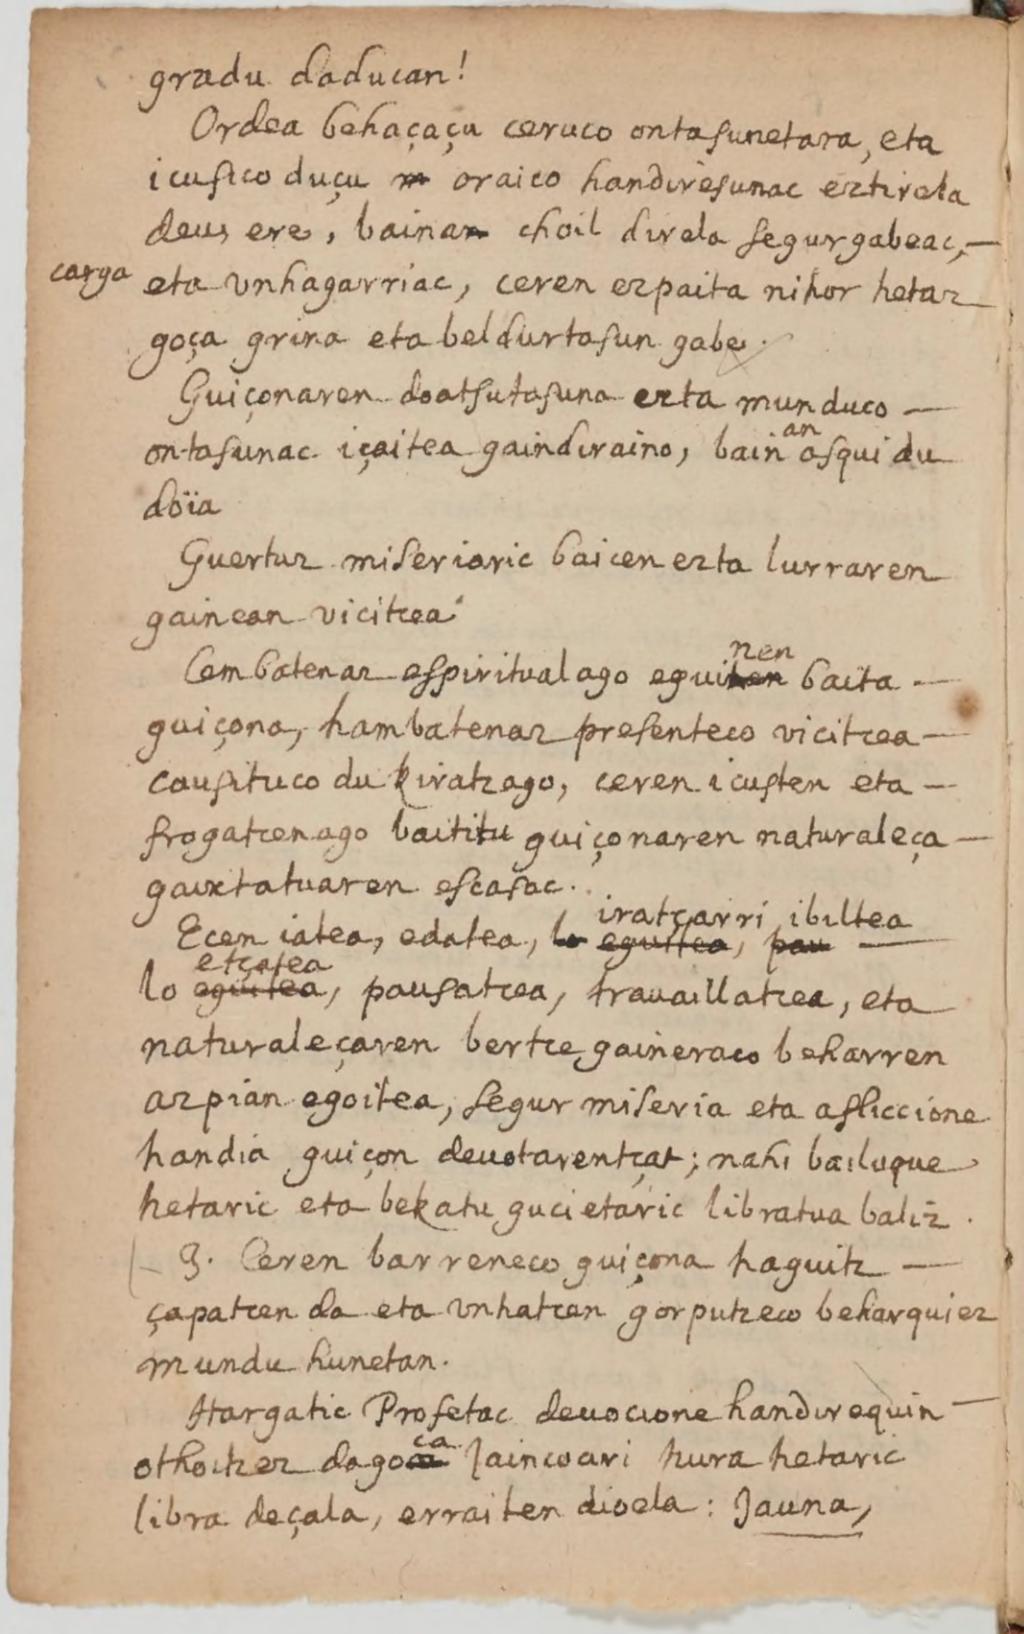 gradu daducan!
Ordea behaçaçu ceruco ontasunetara, eta
icusico duçu oraico handiresunac eztirela
deus ere, bainan choil direla segurgabeac,
carga eta vnhagarriac, ceren ezpaita nihor hetaz
goça grina eta beldurtasun gabe.
Guiçonaren doatsutasuna ezta munduco
ontasunac içaitea gaindiraino, bainan asqui du
doïa
Guertuz miseriaric baicen ezta lurraren
gainean vicitcea
Cembatenaz espiritualago eguinen baita
guiçona, hambatenaz presenteco vicitcea
causituco du kiratzago, ceren icusten eta
frogatcenago baititu guiçonaren naturaleça
gaixtatuaren escasac.
iratçarri, ibiltea
Ecen iatea, edatea, lo eguitea, pau
etçatea
lo eguitea, pausatcea, trauaillatcea, eta
naturaleçaren bertce gaineraco beharren
azpian egoitea, segur miseria eta afliccione
handia guiçon deuotarentçat; nahi bailuque
hetaric eta bekatu gucietaric libratua baliz.
3. Ceren barreneco guiçona haguitz
çapatcen da eta vnhatcen gorputzeco beharquiez
mundu hunetan.
Hargatic Profetac deuocione handirequin
othoitzez dagoca Jaincoari hura hetaric
libra deçala, erraiten dioela: Jauna,